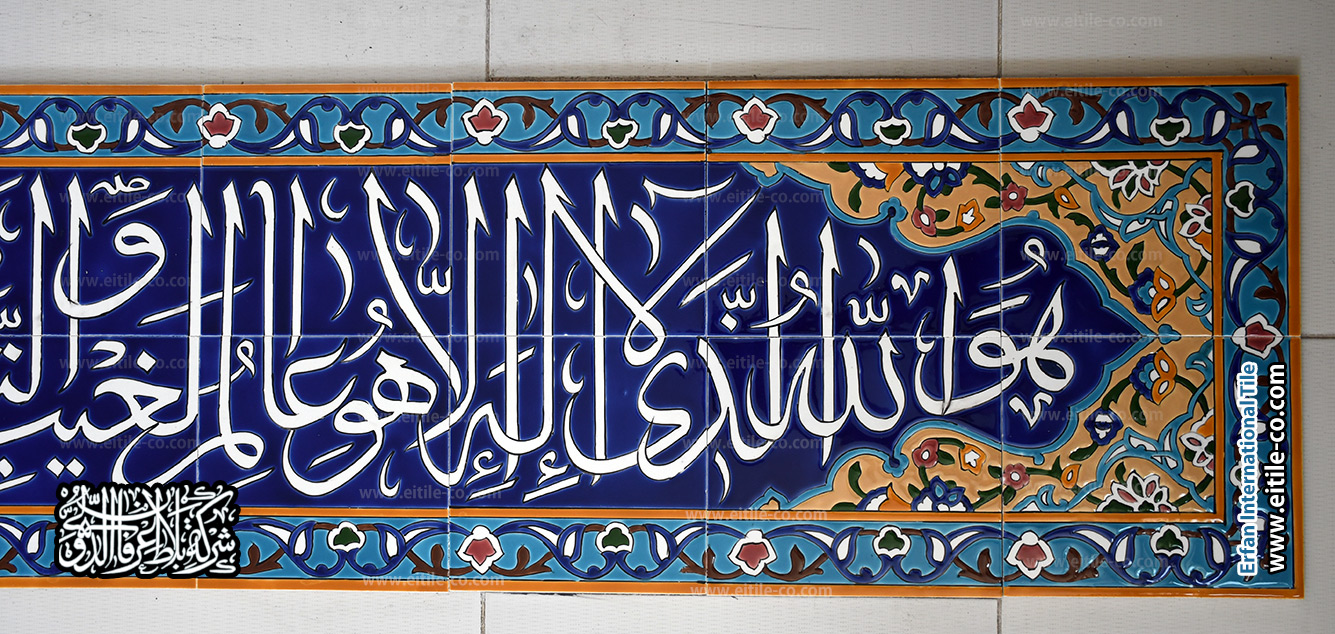 هُوَ اللّٰهُ الَّذی لا إِلهَ إِلّا هُوَ عالِمُ الغَیبِ وَ
Erfan International Tile
www.eitile-co.com